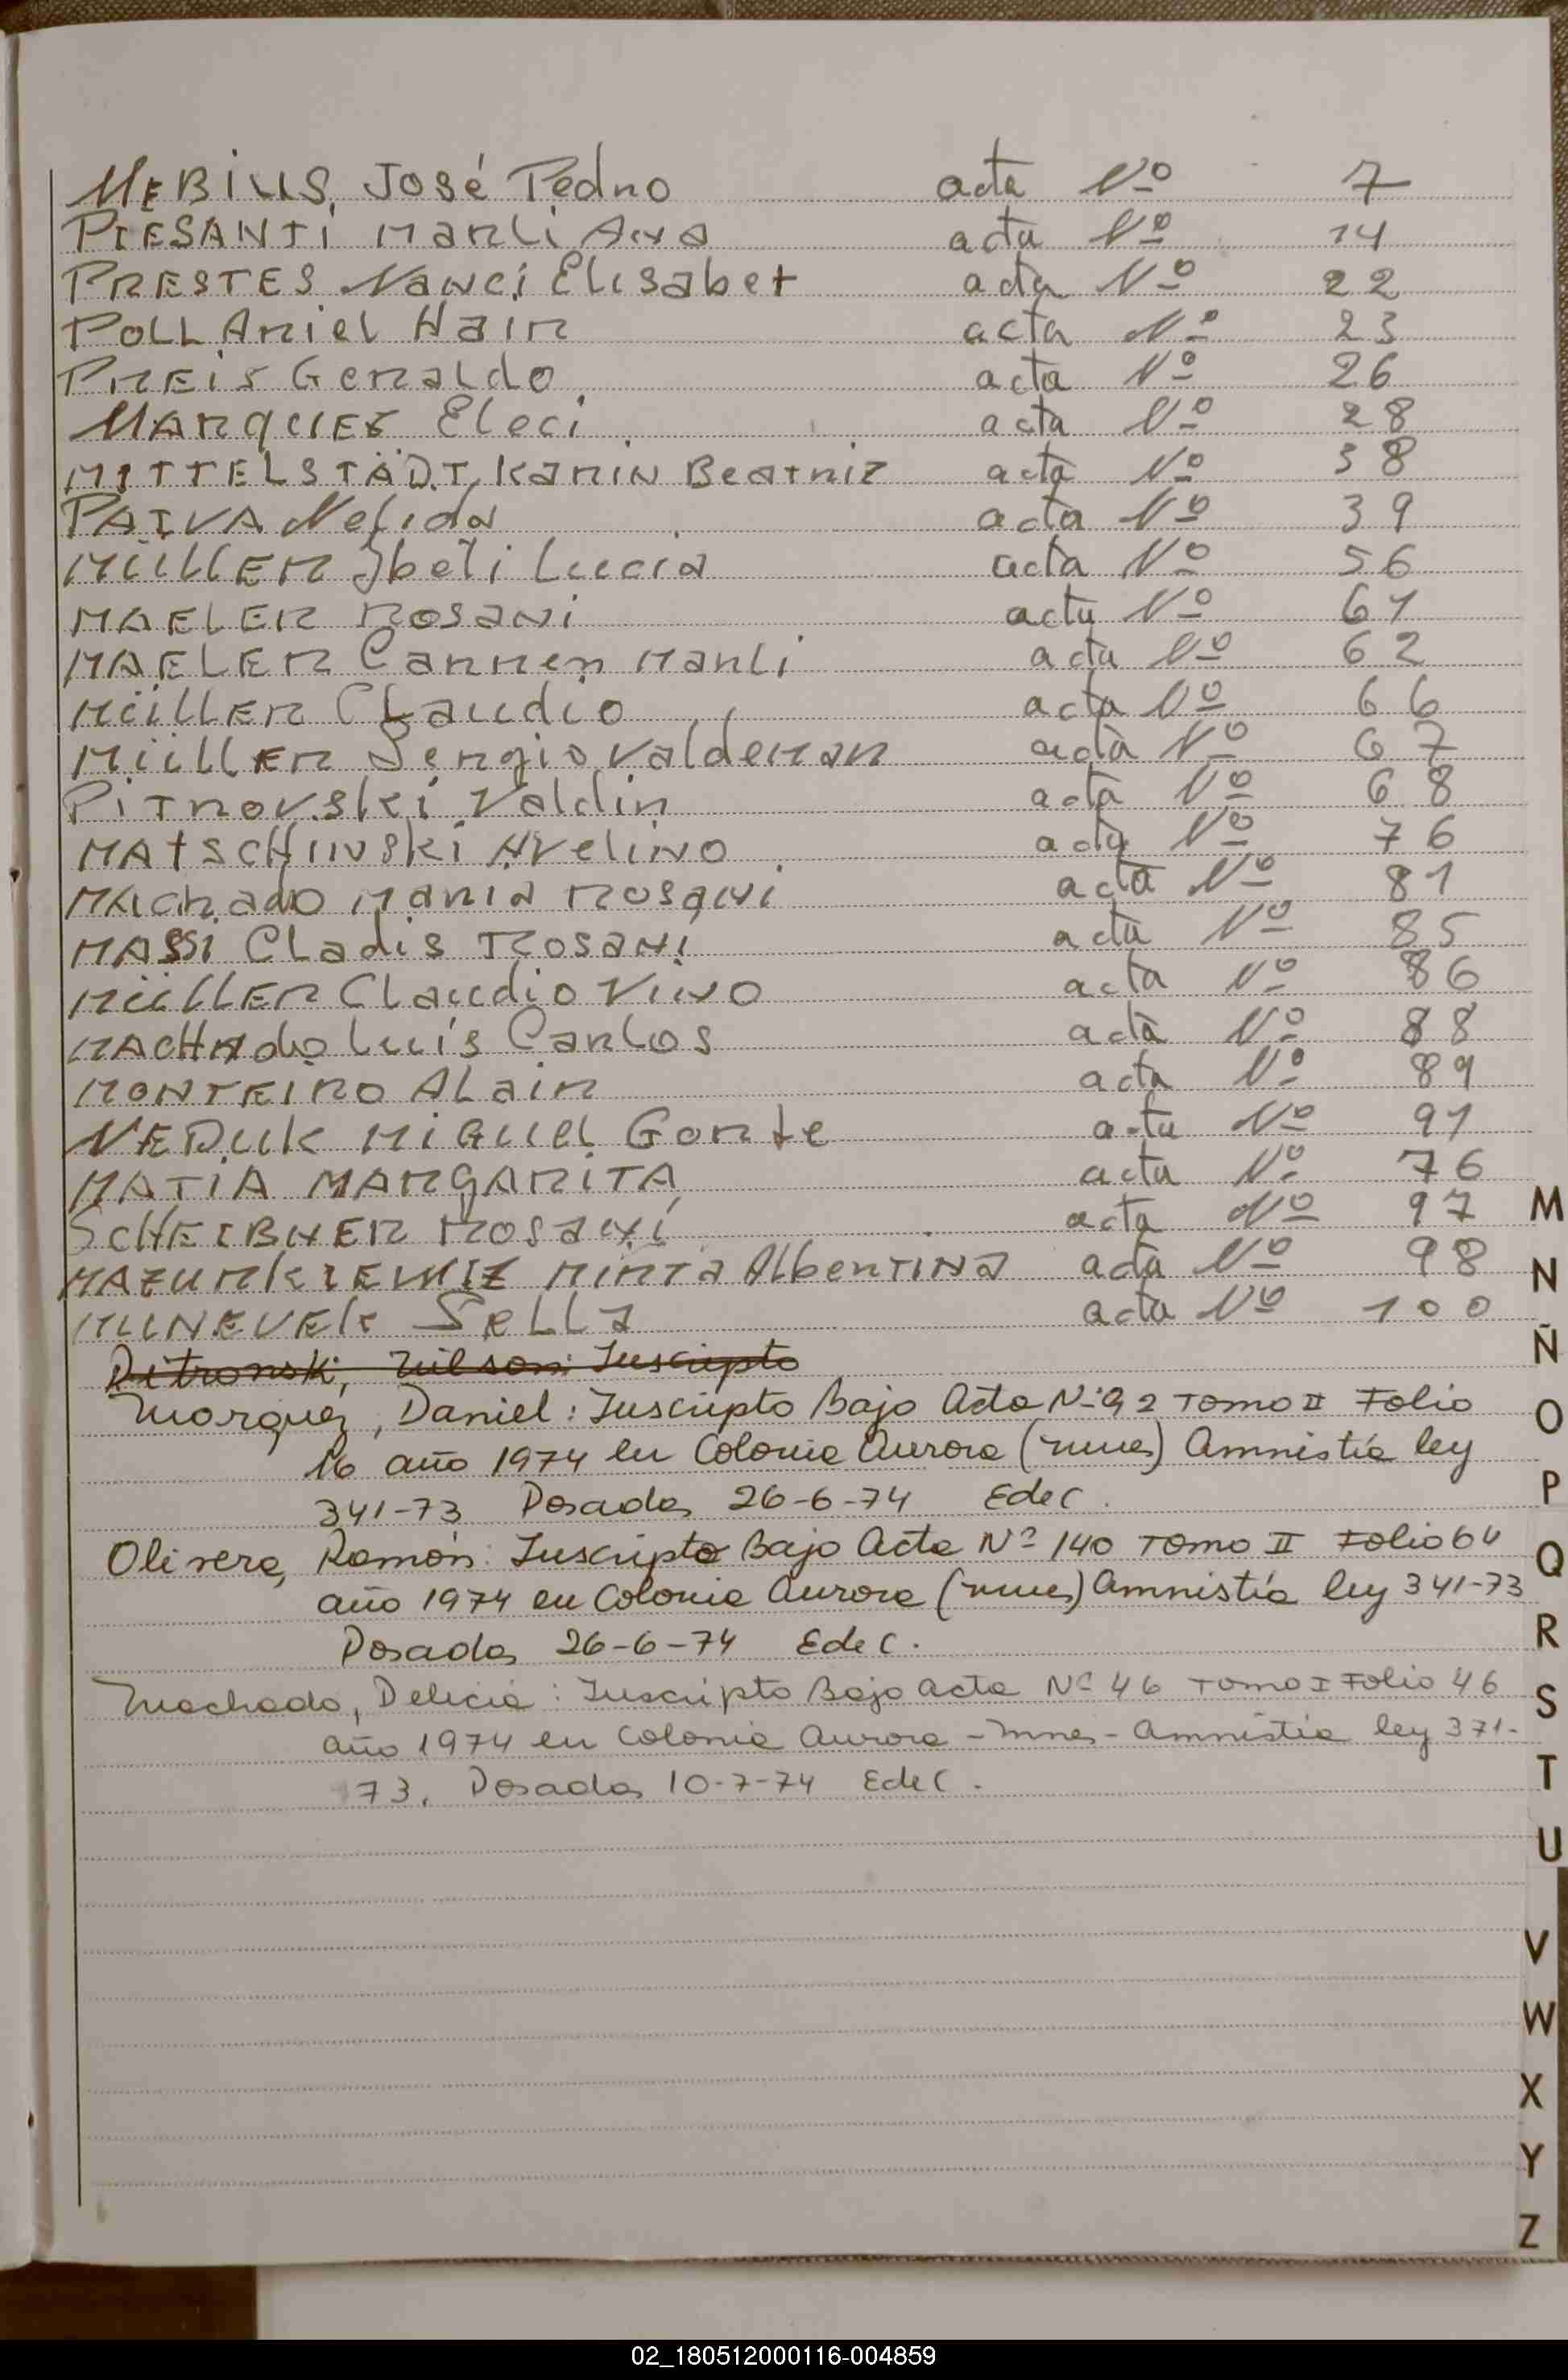 MEBIUS, José Pedro acta Nº 7
PIESANTI Marli Ana acta Nº 14
PRESTES Nanci Elisabet acta Nº 22
POLL Ariel Hair acta Nº 23
PREIS Geraldo acta Nº 26
MARQUES Eleci acta Nº 28
MITTELSTÄDT, Karin Beatriz acta Nº 38
PAIVA Nelida acta Nº 39
MÜLLER Ibeti Lucia acta Nº 56
MAELER Rosani acta Nº 61
MAELER Carmen Marli acta Nº 62
MÜLLER Claudio acta Nº 66
MÜLLER Sergio Valdemar acta Nº 67
PITROVSKI Valdir acta Nº 68
MATSCHINSKI Avelino acta Nº 76
MACHADO Maria Rosani acta Nº 81
MASSI Cladis Rosani acta Nº 85
MÜLLER Claudio Vino acta Nº 86
MACHADO Luís Carlos acta Nº 88
MONTEIRO Alair acta Nº 89
NEDUK Miguel Gorte acta Nº 91
MATIA MARGARITA acta Nº 76
SCHEIBNER Rosani acta Nº 97
MAZURKIEWIZ Mirta Albertina acta Nº 98
MUNEVEK Sella acta Nº 100
Pitronski, Nilson: Inscripto
Marquez, Daniel: Inscripto Bajo Acta Nº 92 Tomo II Folio
16 año 1974 en Colonia Aurora (mnes) Amnistía ley
341-73 Posadas 26-6-74 EdeC.
Olivera, Ramón: Inscripto Bajo Acta Nº 140 Tomo II Folio 64
año 1974 en Colonia Aurora (mnes) Amnistía ley 341-73
Posadas 26-6-74 EdeC.
Machado, Delicia: Inscripto Bajo acta Nº 46 Tomo I Folio 46
año 1974 en Colonia Aurora - Mnes - Amnistia ley 371-
73. Posadas 10-7-74 EdeC.
M
N
Ñ
O
P
Q
R
S
T
U
V
W
X
Y
Z
02_180512000116-004859